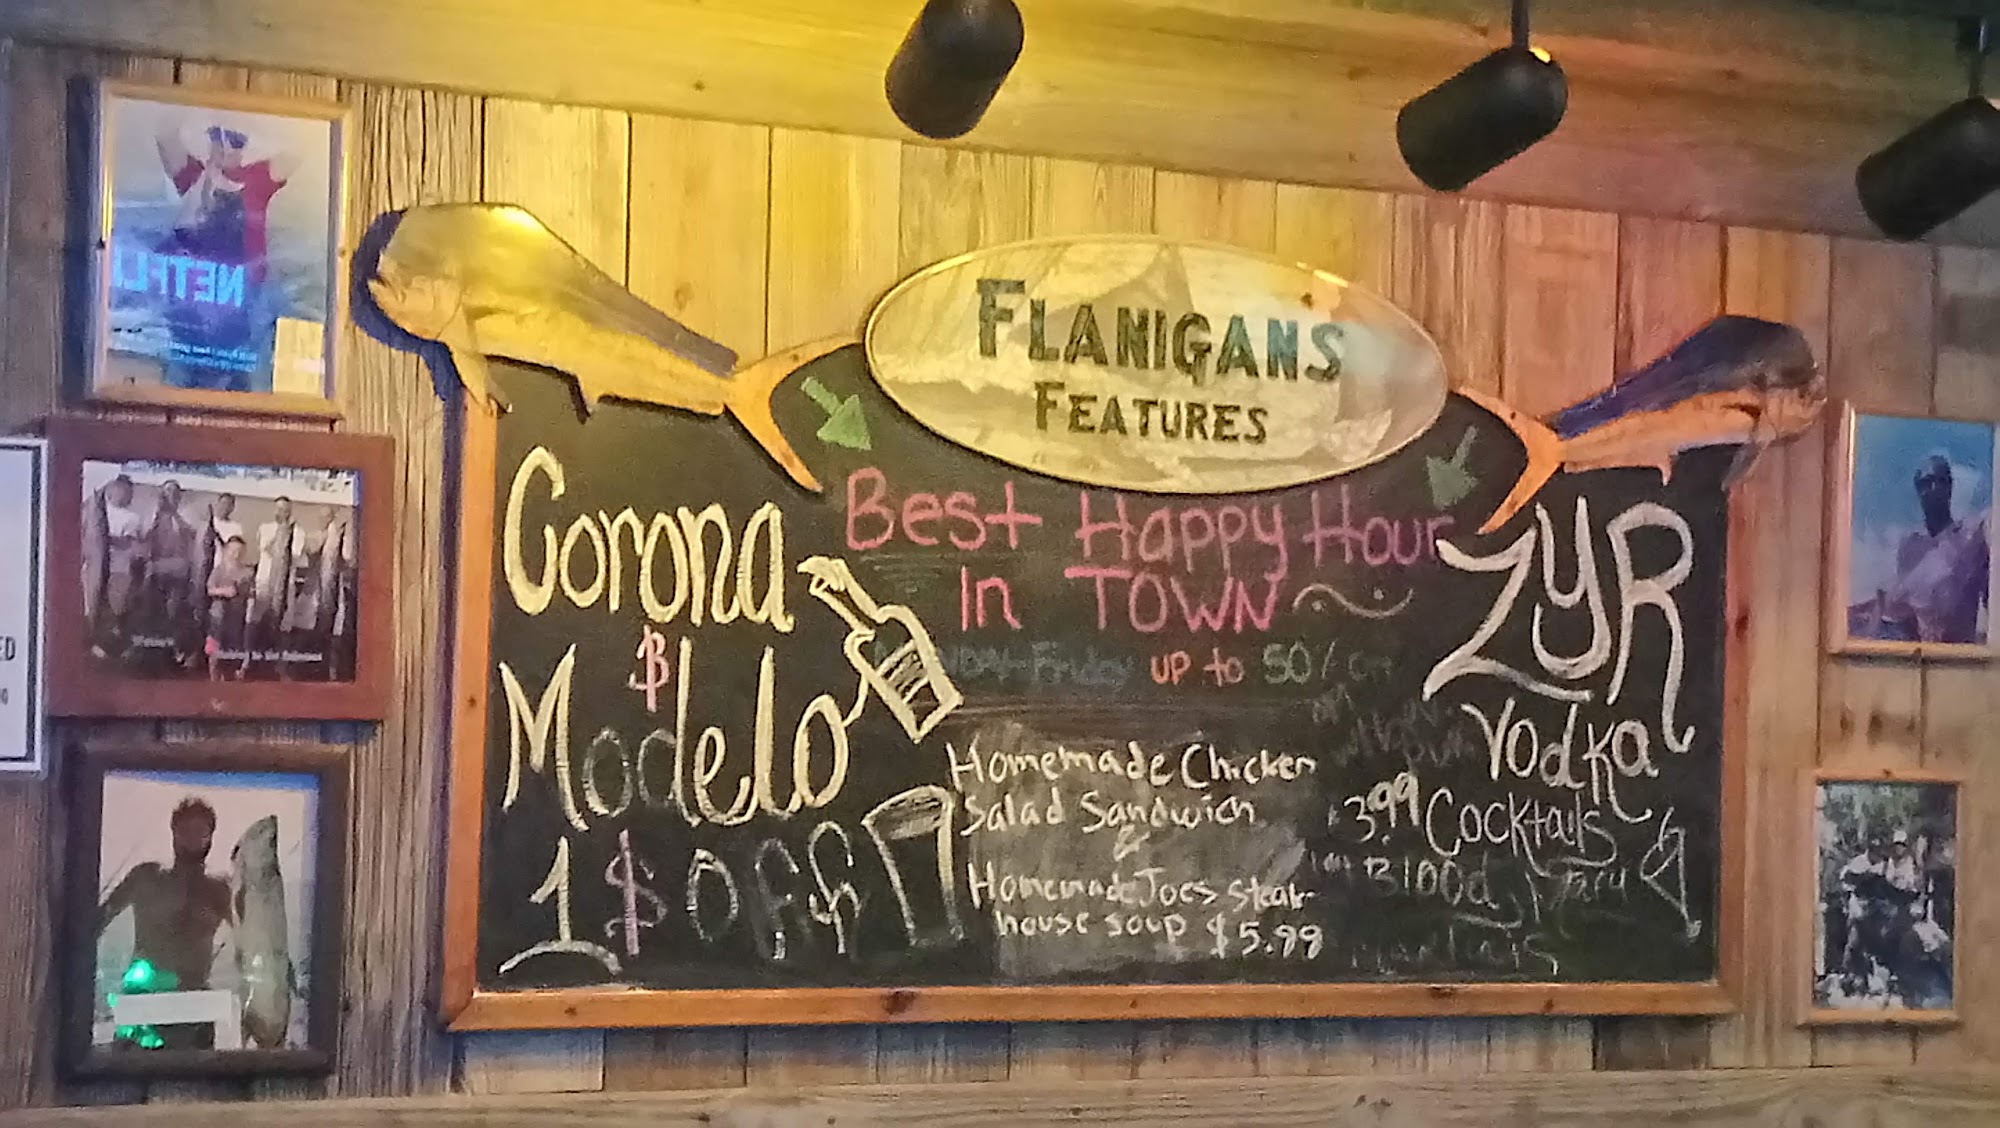 FLANIGANS
FEATURES
Best Happy Hour
In TOWN
Friday up to 50%
Corona
$
Modelo
1 $ OFF
Homemade Chicken
Salad Sandwich
&
Homemade Joes Steak
house soup $5.99
ZYR
Vodka
3.99 Cocktails
Blood
NETFL
ED